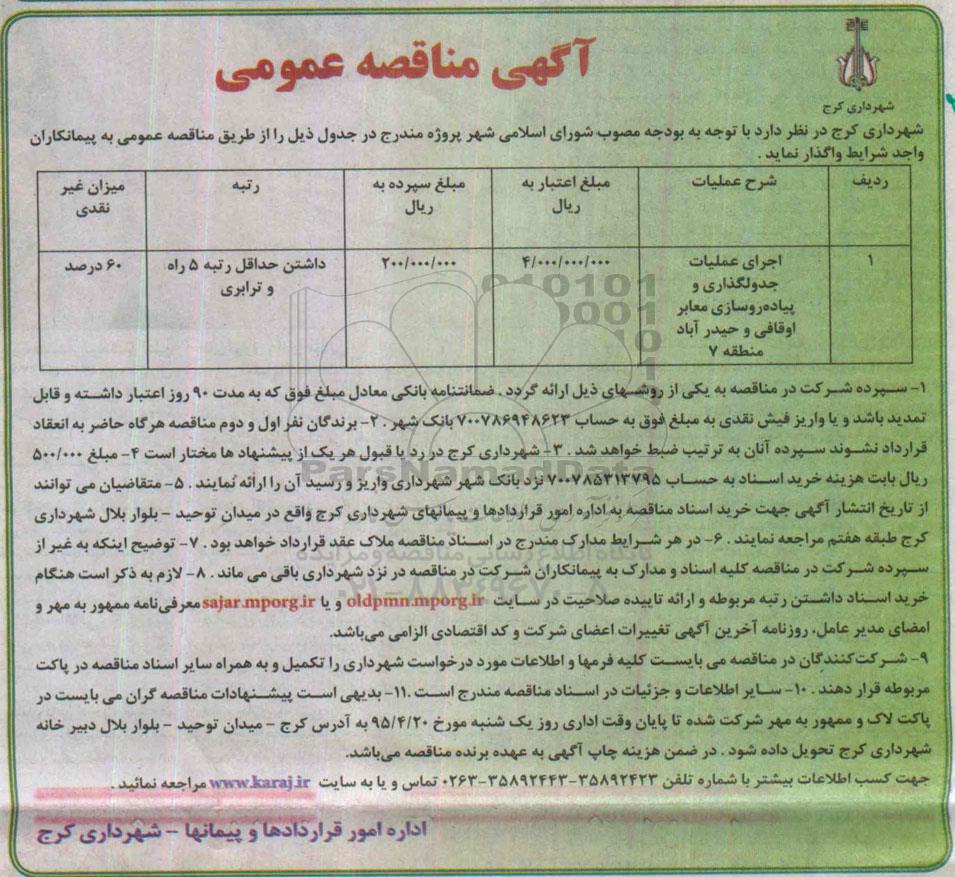 شهرداری کرج
آگهی مناقصه عمومی
شهرداری کرج در نظر دارد با توجه به بودجه مصوب شورای اسلامی شهر پروژه مندرج در جدول ذیل را از طریق مناقصه عمومی به پیمانکاران
واجد شرایط واگذار نماید .
ردیف شرح عملیات مبلغ اعتبار به ریال مبلغ سپرده به ریال رتبه میزان غیر نقدی
۱ اجرای عملیات ۴/۰۰۰/۰۰۰/۰۰۰ ۲۰۰/۰۰۰/۰۰۰ داشتن حداقل رتبه ۵ راه ۶۰ درصد
جدولگذاری و و ترابری
پیاده‌روسازی معابر
اوقافی و حیدر آباد
منطقه ۷
۱- سپرده شرکت در مناقصه به یکی از روشهای ذیل ارائه گردد . ضمانتنامه بانکی معادل مبلغ فوق که به مدت ۹۰ روز اعتبار داشته و قابل
تمدید باشد و یا واریز فیش نقدی به مبلغ فوق به حساب ۷۰۰۷۸۶۹۴۸۶۲۳ بانک شهر . ۲- برندگان نفر اول و دوم مناقصه هرگاه حاضر به انعقاد
قرارداد نشوند سپرده آنان به ترتیب ضبط خواهد شد . ۳- شهرداری کرج در رد یا قبول هر یک از پیشنهاد ها مختار است ۴- مبلغ ۵۰۰/۰۰۰
ریال بابت هزینه خرید اسناد به حساب ۷۰۰۷۸۵۳۱۳۷۹۵ نزد بانک شهر شهرداری واریز و رسید آن را ارائه نمایند . ۵- متقاضیان می توانند
از تاریخ انتشار آگهی جهت خرید اسناد مناقصه به اداره امور قراردادها و پیمانهای شهرداری کرج واقع در میدان توحید - بلوار بلال شهرداری
کرج طبقه هفتم مراجعه نمایند . ۶- در هر شرایط مدارک مندرج در اسناد مناقصه ملاک عقد قرارداد خواهد بود . ۷- توضیح اینکه به غیر از
سپرده شرکت در مناقصه کلیه اسناد و مدارک به پیمانکاران شرکت در مناقصه در نزد شهرداری باقی می ماند . ۸- لازم به ذکر است هنگام
خرید اسناد داشتن رتبه مربوطه و ارائه تاییده صلاحیت در سایت oldpmn.mporg.ir و یا sajar.mporg.ir معرفی‌نامه ممهور به مهر و
امضای مدیر عامل، روزنامه آخرین آگهی تغییرات اعضای شرکت و کد اقتصادی الزامی می‌باشد.
۹- شرکت‌کنندگان در مناقصه می بایست کلیه فرمها و اطلاعات مورد درخواست شهرداری را تکمیل و به همراه سایر اسناد مناقصه در پاکت
مربوطه قرار دهند . ۱۰- سایر اطلاعات و جزئیات در اسناد مناقصه مندرج است .۱۱- بدیهی است پیشنهادات مناقصه گران می بایست در
پاکت لاک و ممهور به مهر شرکت شده تا پایان وقت اداری روز یک شنبه مورخ ۹۵/۴/۲۰ به آدرس کرج - میدان توحید - بلوار بلال دبیر خانه
شهرداری کرج تحویل داده شود . در ضمن هزینه چاپ آگهی به عهده برنده مناقصه می‌باشد.
جهت کسب اطلاعات بیشتر با شماره تلفن ۳۵۸۹۲۴۲۳-۳۵۸۹۲۴۴۳-۰۲۶۳ تماس و یا به سایت www.karaj.ir مراجعه نمائید .
اداره امور قراردادها و پیمانها - شهرداری کرج
ParsNamadData